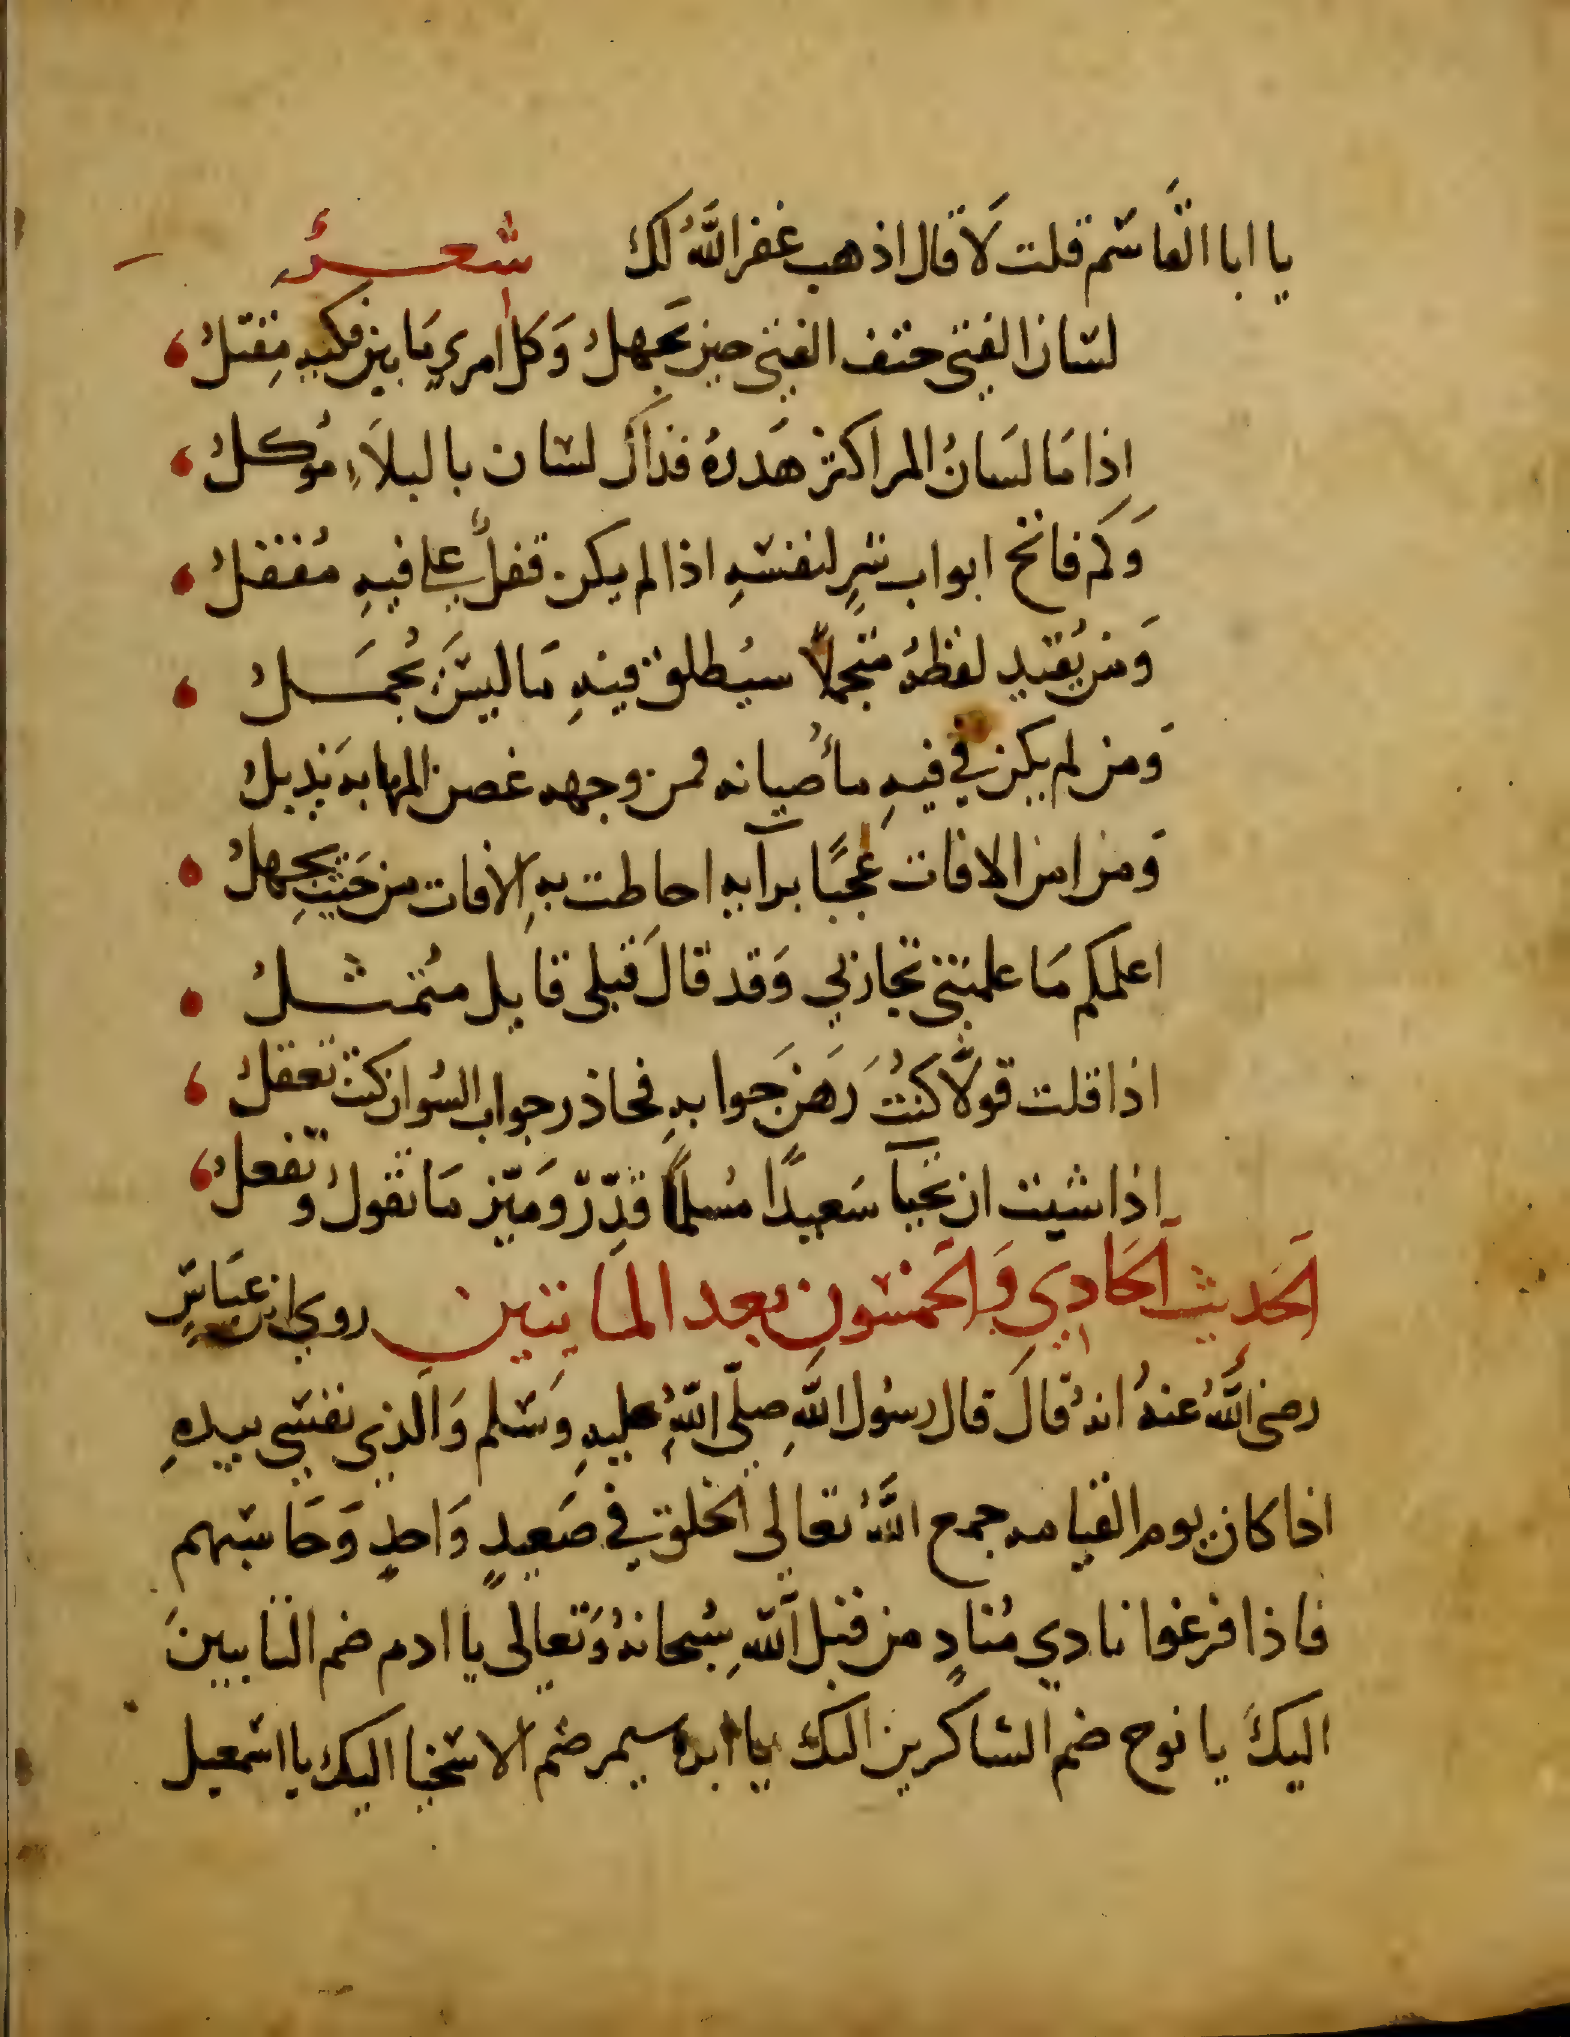 يا ابا القاسم قلت لَا قال اذهب غفر اللَّهُ لك شعرٌ
لسان الفتى حتف الفتى حين يَجهلُ وَكل امرىٍ مَا بين فكيهِ مِقتلُ
اِذا مَا لسَانُ المرا كثر هَدرهُ فذاكَ لسان بالبلاَءِ مُوَكلُ
وَكَم فاتح ابواب شرٍ لنفسهِ اذا لم يكن قفلٌ على فيهِ مُقفلُ
وَمَن يُقيد لفظهُ متجملاً سيُطلق فيهِ مَا ليسَ يُجمَلُ
وَمن لم يكن في فيهِ مأُ صيانه فمن وجهه غصن المهابه يَذبلُ
وَمن امن الافات عُجبًا برآيهِ احاطت بهِ الافات من حَيثِ يجهلُ
اعلمكم مَا علمتنى تجاربي وَقد قالَ قبلى قايل متمثلُ
اذا قلت قولًا كنتُ رَهنَ جَوابهِ فحاذر جواب السُوان كنت تعقلُ
اذا شيت ان تحيآ سَعيدًا مسُلمًا فدِبّر وَميّز مَا تقولُ وتفعلُ
الحَديث الحَادِي وَالخمسُون بعد المَايتين روي ابن عَبَاسٍ
رضى اللَّهُ عنهُ انهُ قالَ قال رسُول اللَّهِ صلّى اللَّهُ عليهِ وَسَلم وَالذي نفسي بيدهِ
اذا كان يوم القيامه جمع اللَّهُ تعالى الخلق في صَعيدٍ وَاحدٍ وَحَاسبهم
فاذا فرغوا نادي مُنادٍ من قبل اللَّهِ سُبحانهُ وَتعالى يا ادم ضم التايبينَ
اليكَ يا نوح ضم الشاكرين اليك يا ابراهيم ضم الاسخيا اليك يا اسمعيل